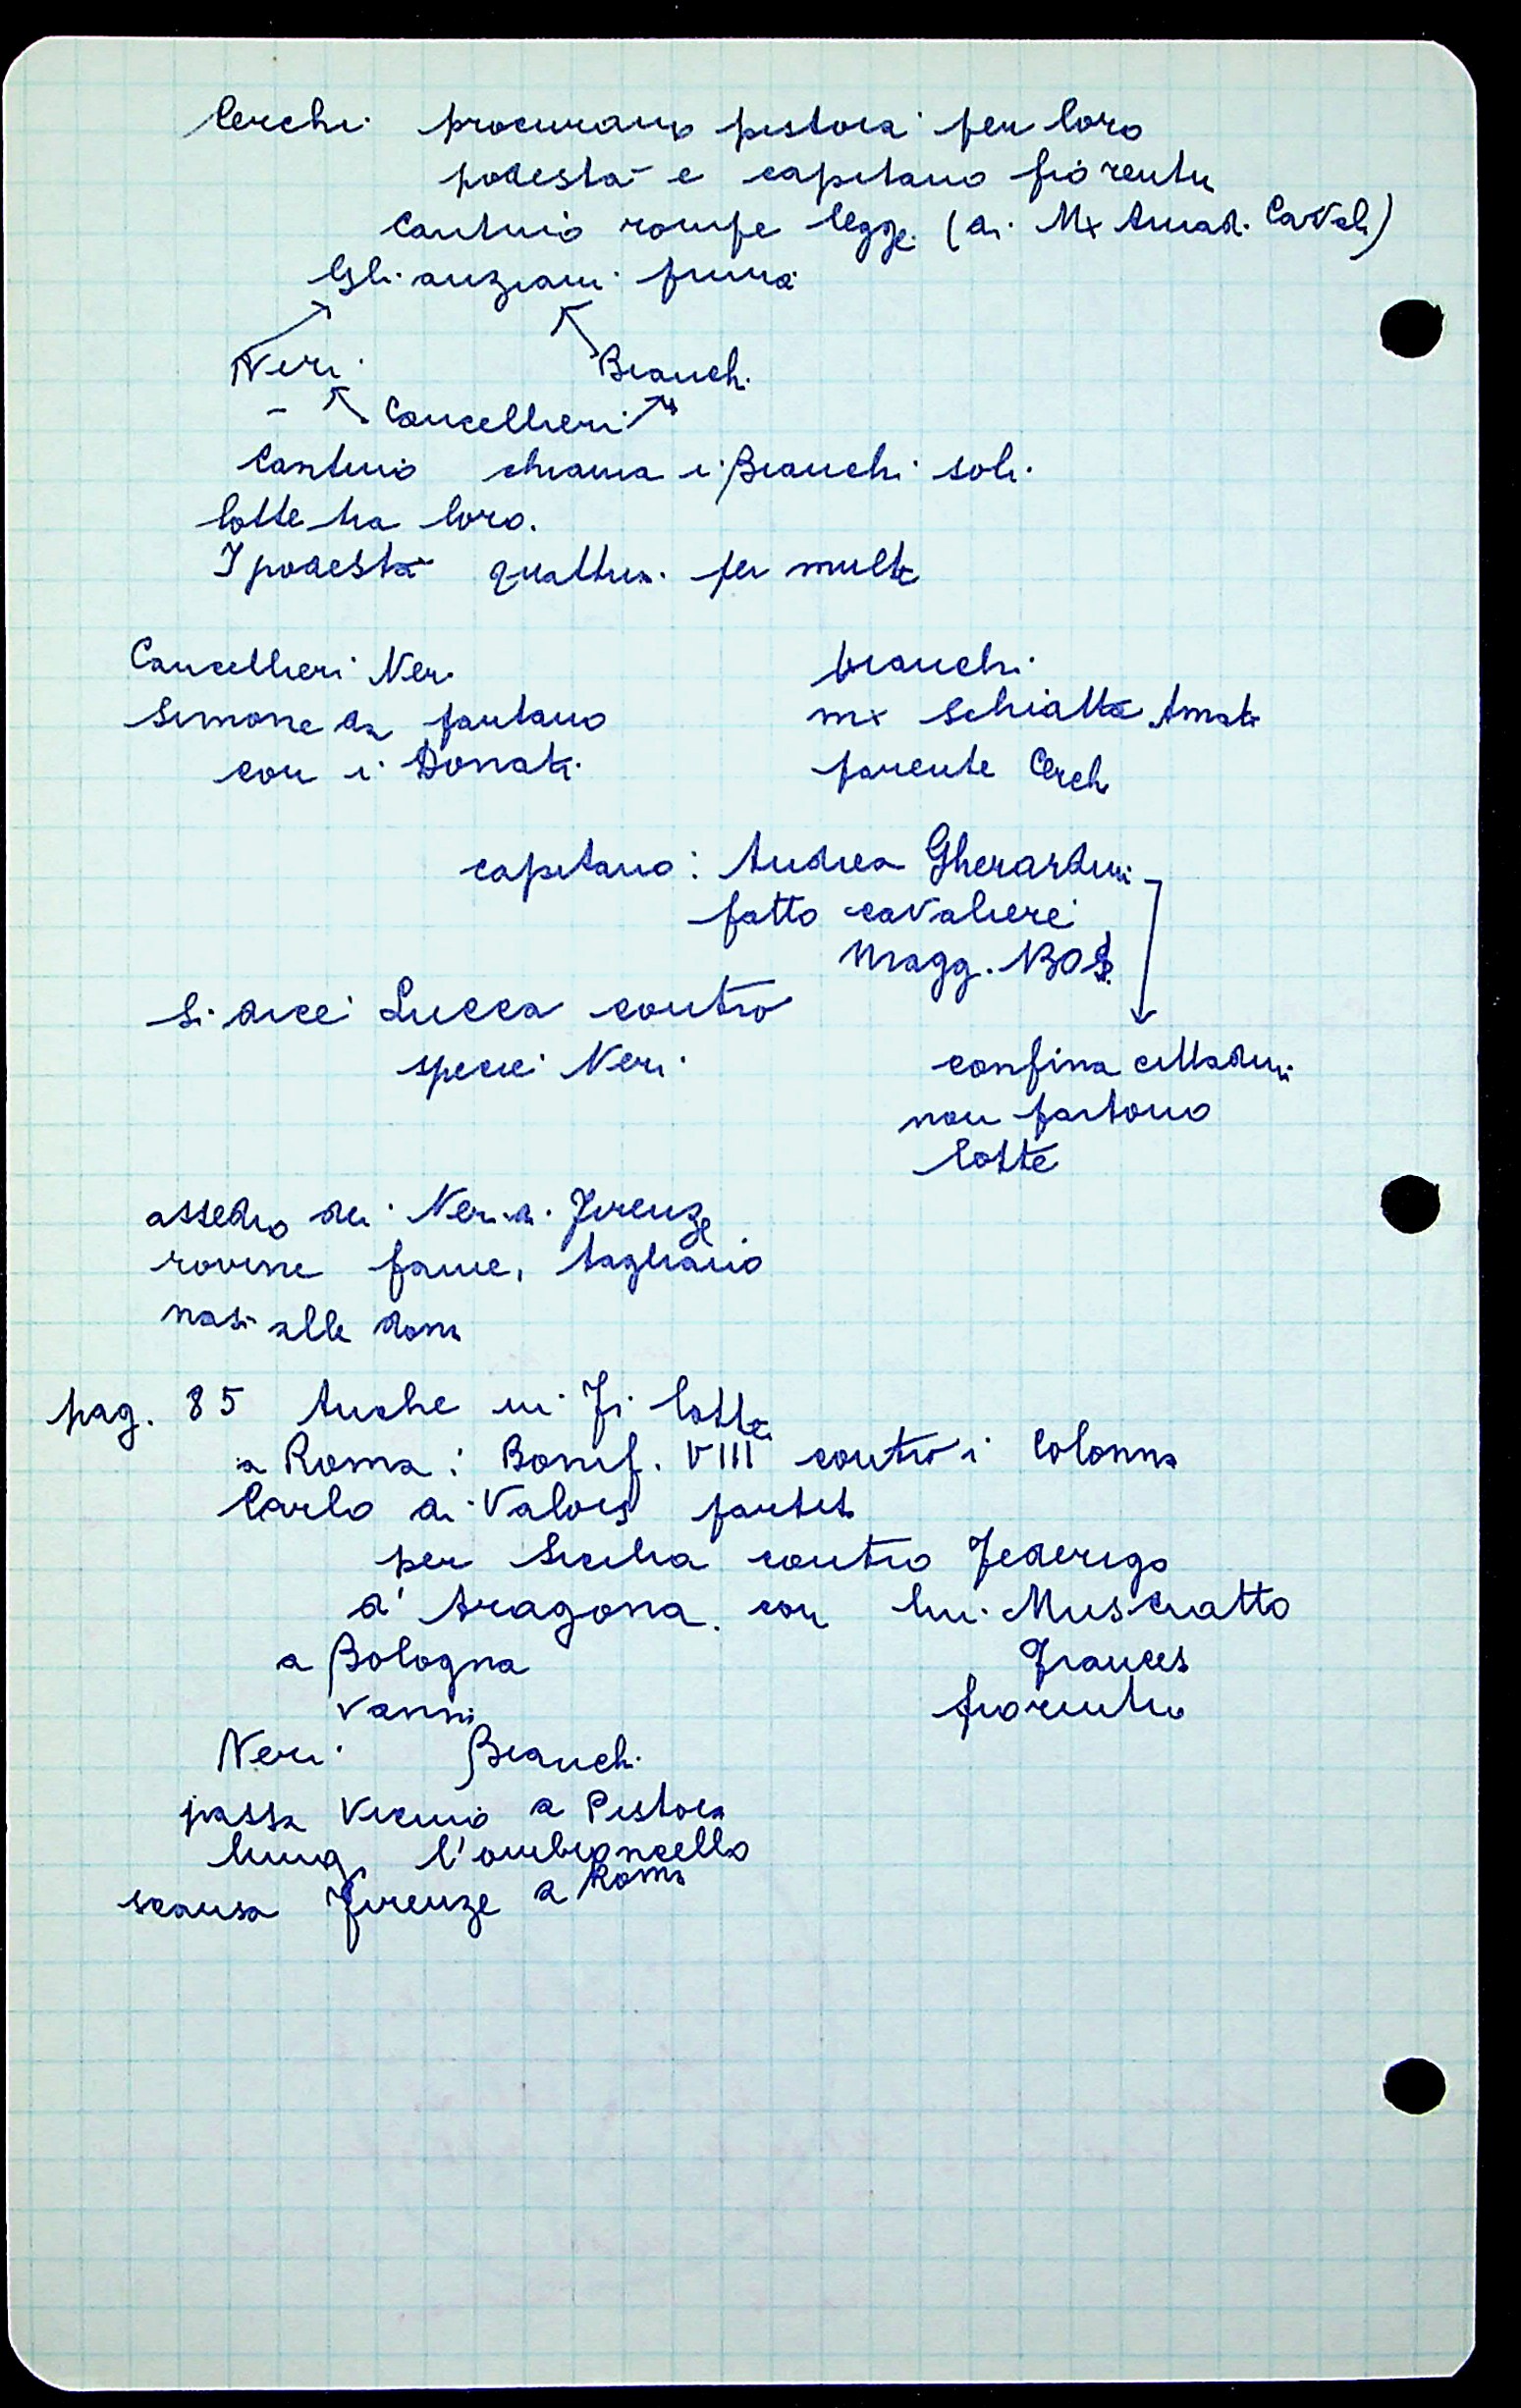 Cerchi procurano pistoia per loro
podestà e capitano fiorentin
Cantino rompe legge (di Mx Amad. Caval.)
Gli anziani prima
Neri Bianch.
- Cancellieri
Cantino chiama i Bianchi soli.
lotte tra loro.
I podestà quattrin. per multe
Cancellieri Ner. bianchi
Simone da pantano mx Schiatta Amati
con i Donati. parente Cerch
capitano: Andrea Gherardini
fatto cavaliere
Magg. 130
Si dice Lucca contro
specie Neri
confina cittadini
non partono
lotte
assedio dei Neri di Firenze
rovine fame, tagliano
nasi alle donn
pag. 85 Anche in Fi lotte
a Roma: Bonif. VIII contro i Colonna
Carlo di Valois partito
per Sicilia contro Federigo
d'Aragona. con lui Musciatto
a Bologna Frances
vanni fiorentino
Neri Bianchi
passa vicino a Pistoia
lungo l'ombroncello
scansa Firenze a Roma